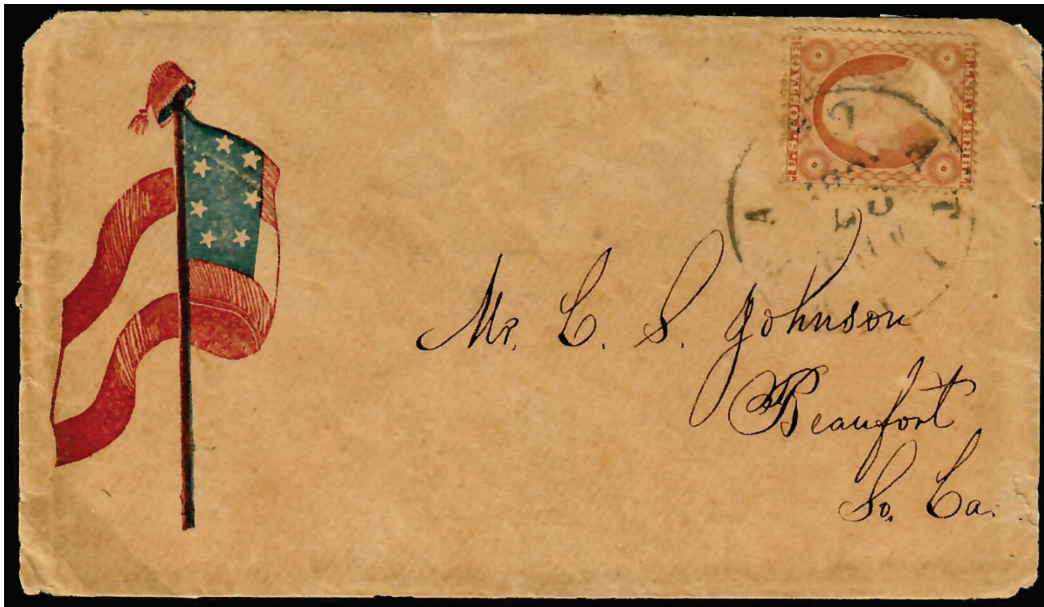 U.S. POSTAGE
THREE CENTS
Mr. C. S. Johnson
Beaufort
So. Ca.